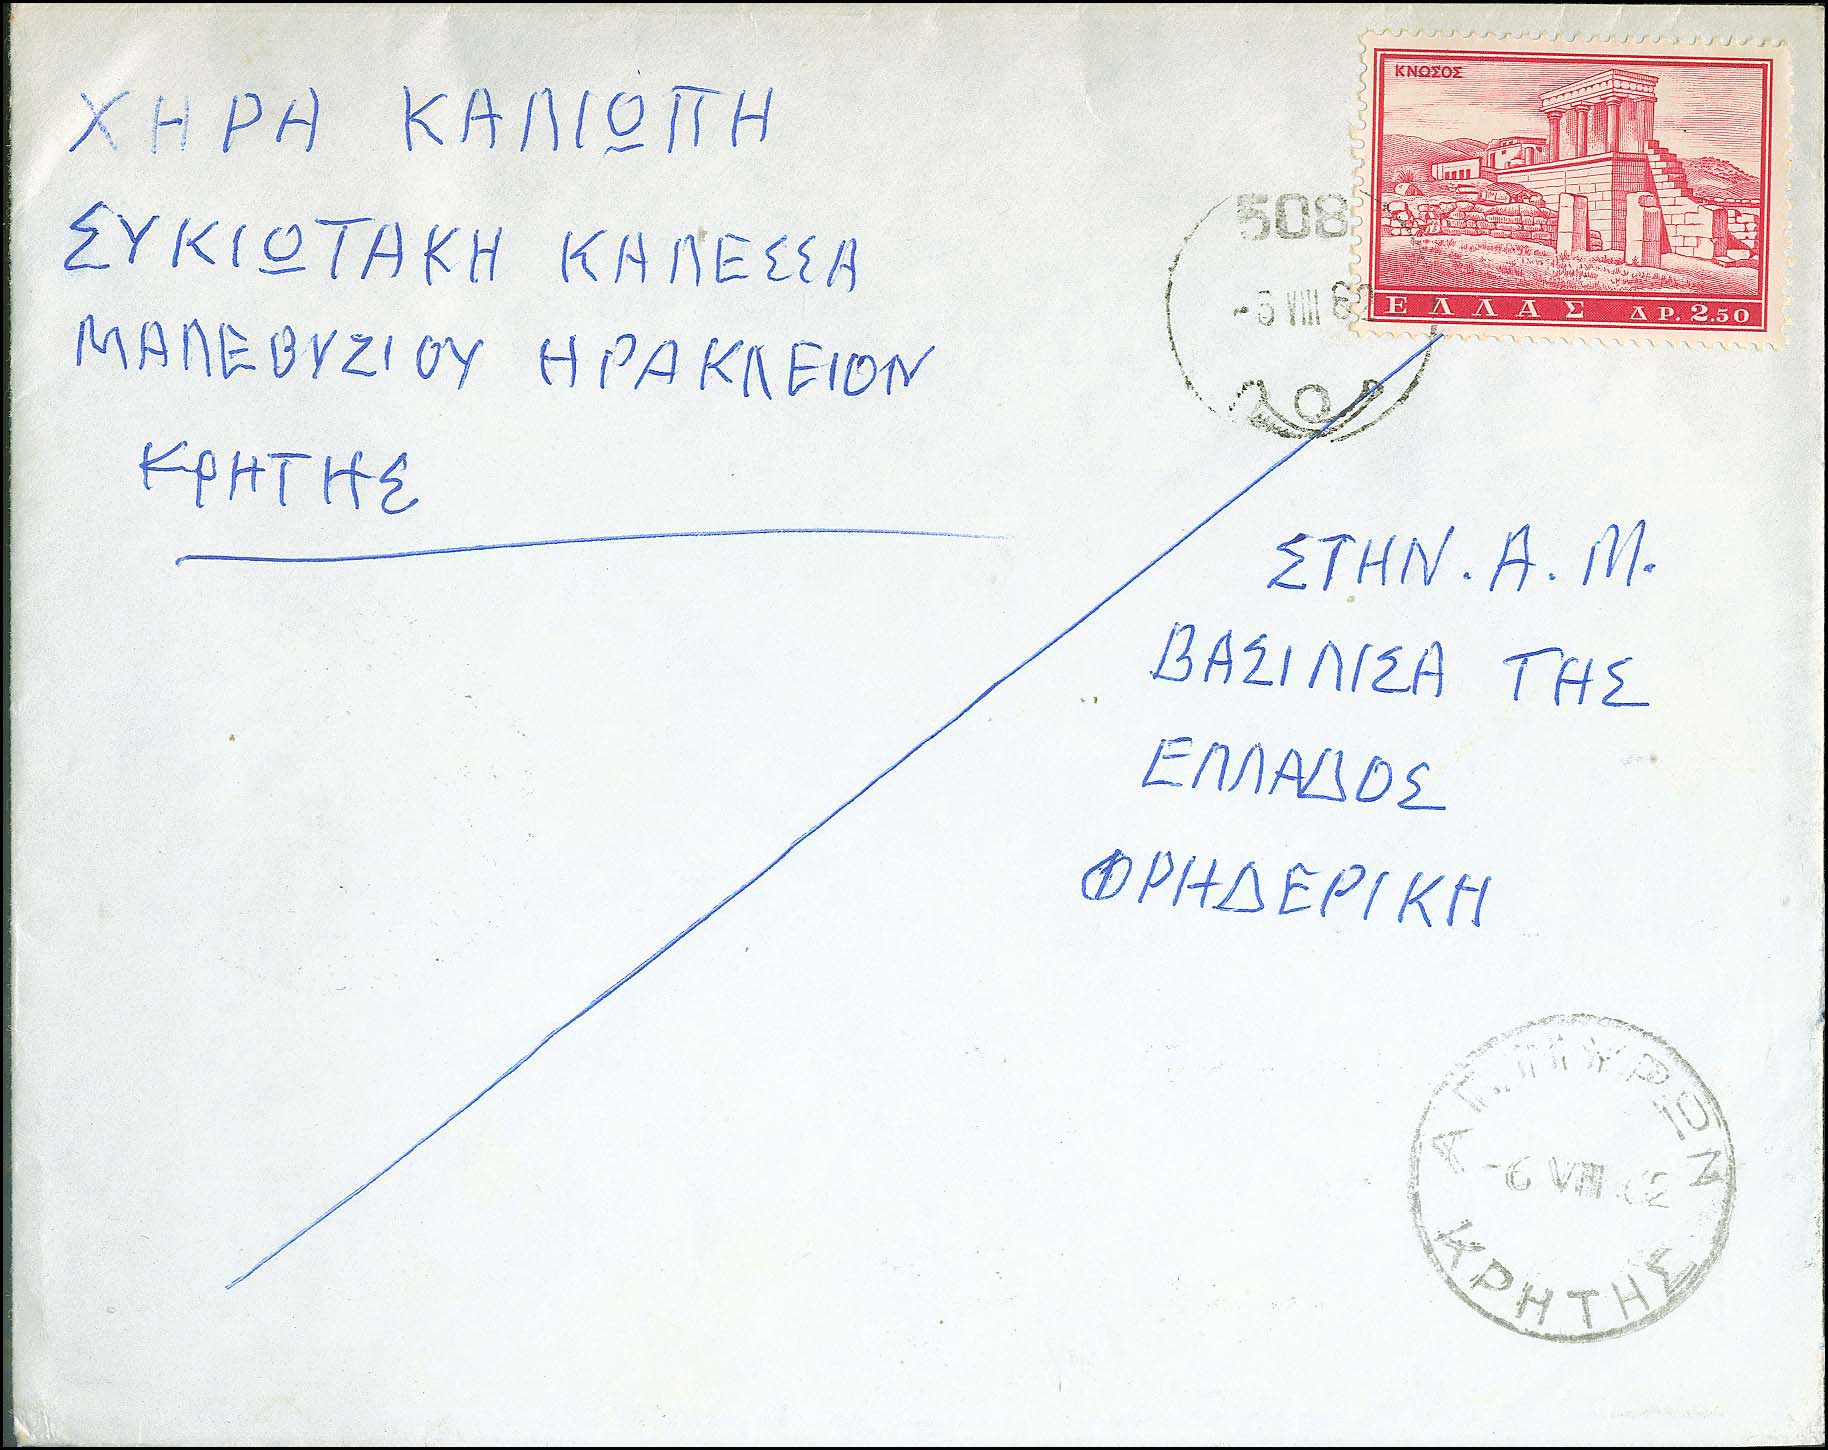 ΧΗΡΑ ΚΑΛΙΩΠΗ
ΣΥΚΙΩΤΑΚΗ ΚΑΛΕΣΣΑ
ΜΑΛΕΒΥΖΙΟΥ ΗΡΑΚΛΕΙΟΝ
ΚΡΗΤΗΣ
ΚΝΩΣΟΣ
ΕΛΛΑΣ ΔΡ. 2.50
508
VIII
ΣΤΗΝ. Α. Μ.
ΒΑΣΙΛΙΣΑ ΤΗΣ
ΕΛΛΑΔΟΣ
ΦΡΗΔΕΡΙΚΗ
-6 VIII 62
ΚΡΗΤΗΣ